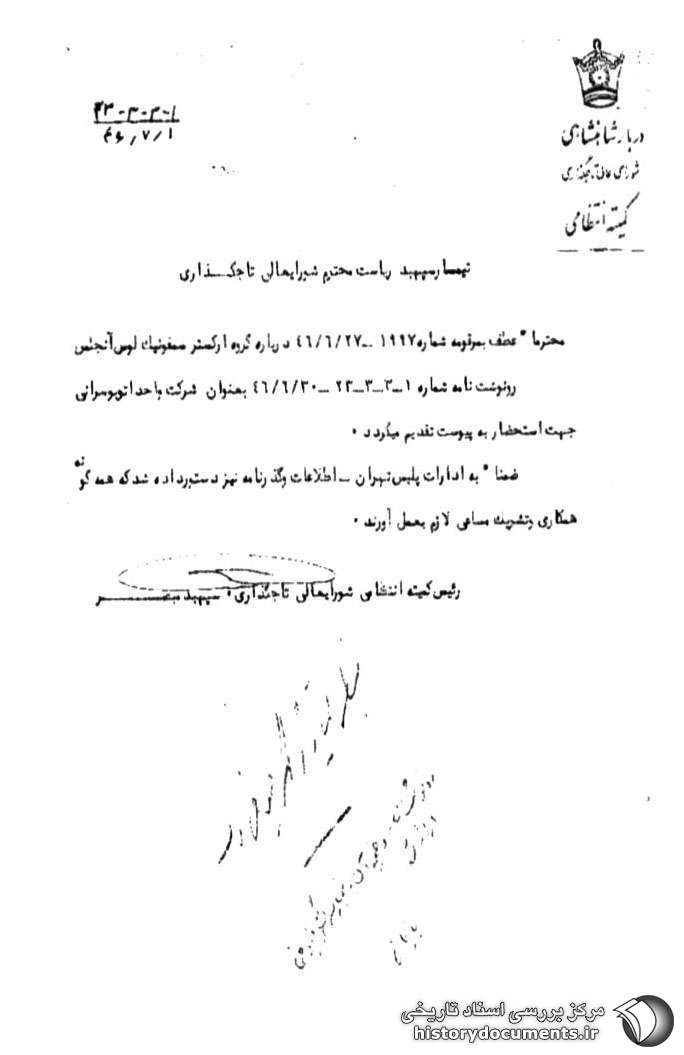 دربار شاهنشاهی
شورای عالی تاجگذاری
کمیته انتظامی
۲۳-۳-۳-۱
۴۶/۷/۱
تیمسار سپهبد ریاست محترم شورایعالی تاجگـذاری
محترما" عطف بمرقومه شماره ۱۹۹۷ ــ ۴۶/۶/۲۷ درباره گروه ارکستر سمفونیک لوس‌آنجلس
رونوشت نامه شماره ۱ــ۳ــ۳ــ۲۳ ــ ۴۶/۶/۳۰ بعنوان شرکت واحد اتوبوسرانی
جهت استحضار به پیوست تقدیم میگردد .
ضمنا" به ادارات پلیس تهران ــ اطلاعات وگذرنامه نیز دستورداده شد که همه گونه
همکاری وتشریک مساعی لازم بعمل آورند .
رئیس کمیته انتظامی شورایعالی تاجگذاری . سپهبد مبصــر
مرکز بررسی اسناد تاریخی
historydocuments.ir